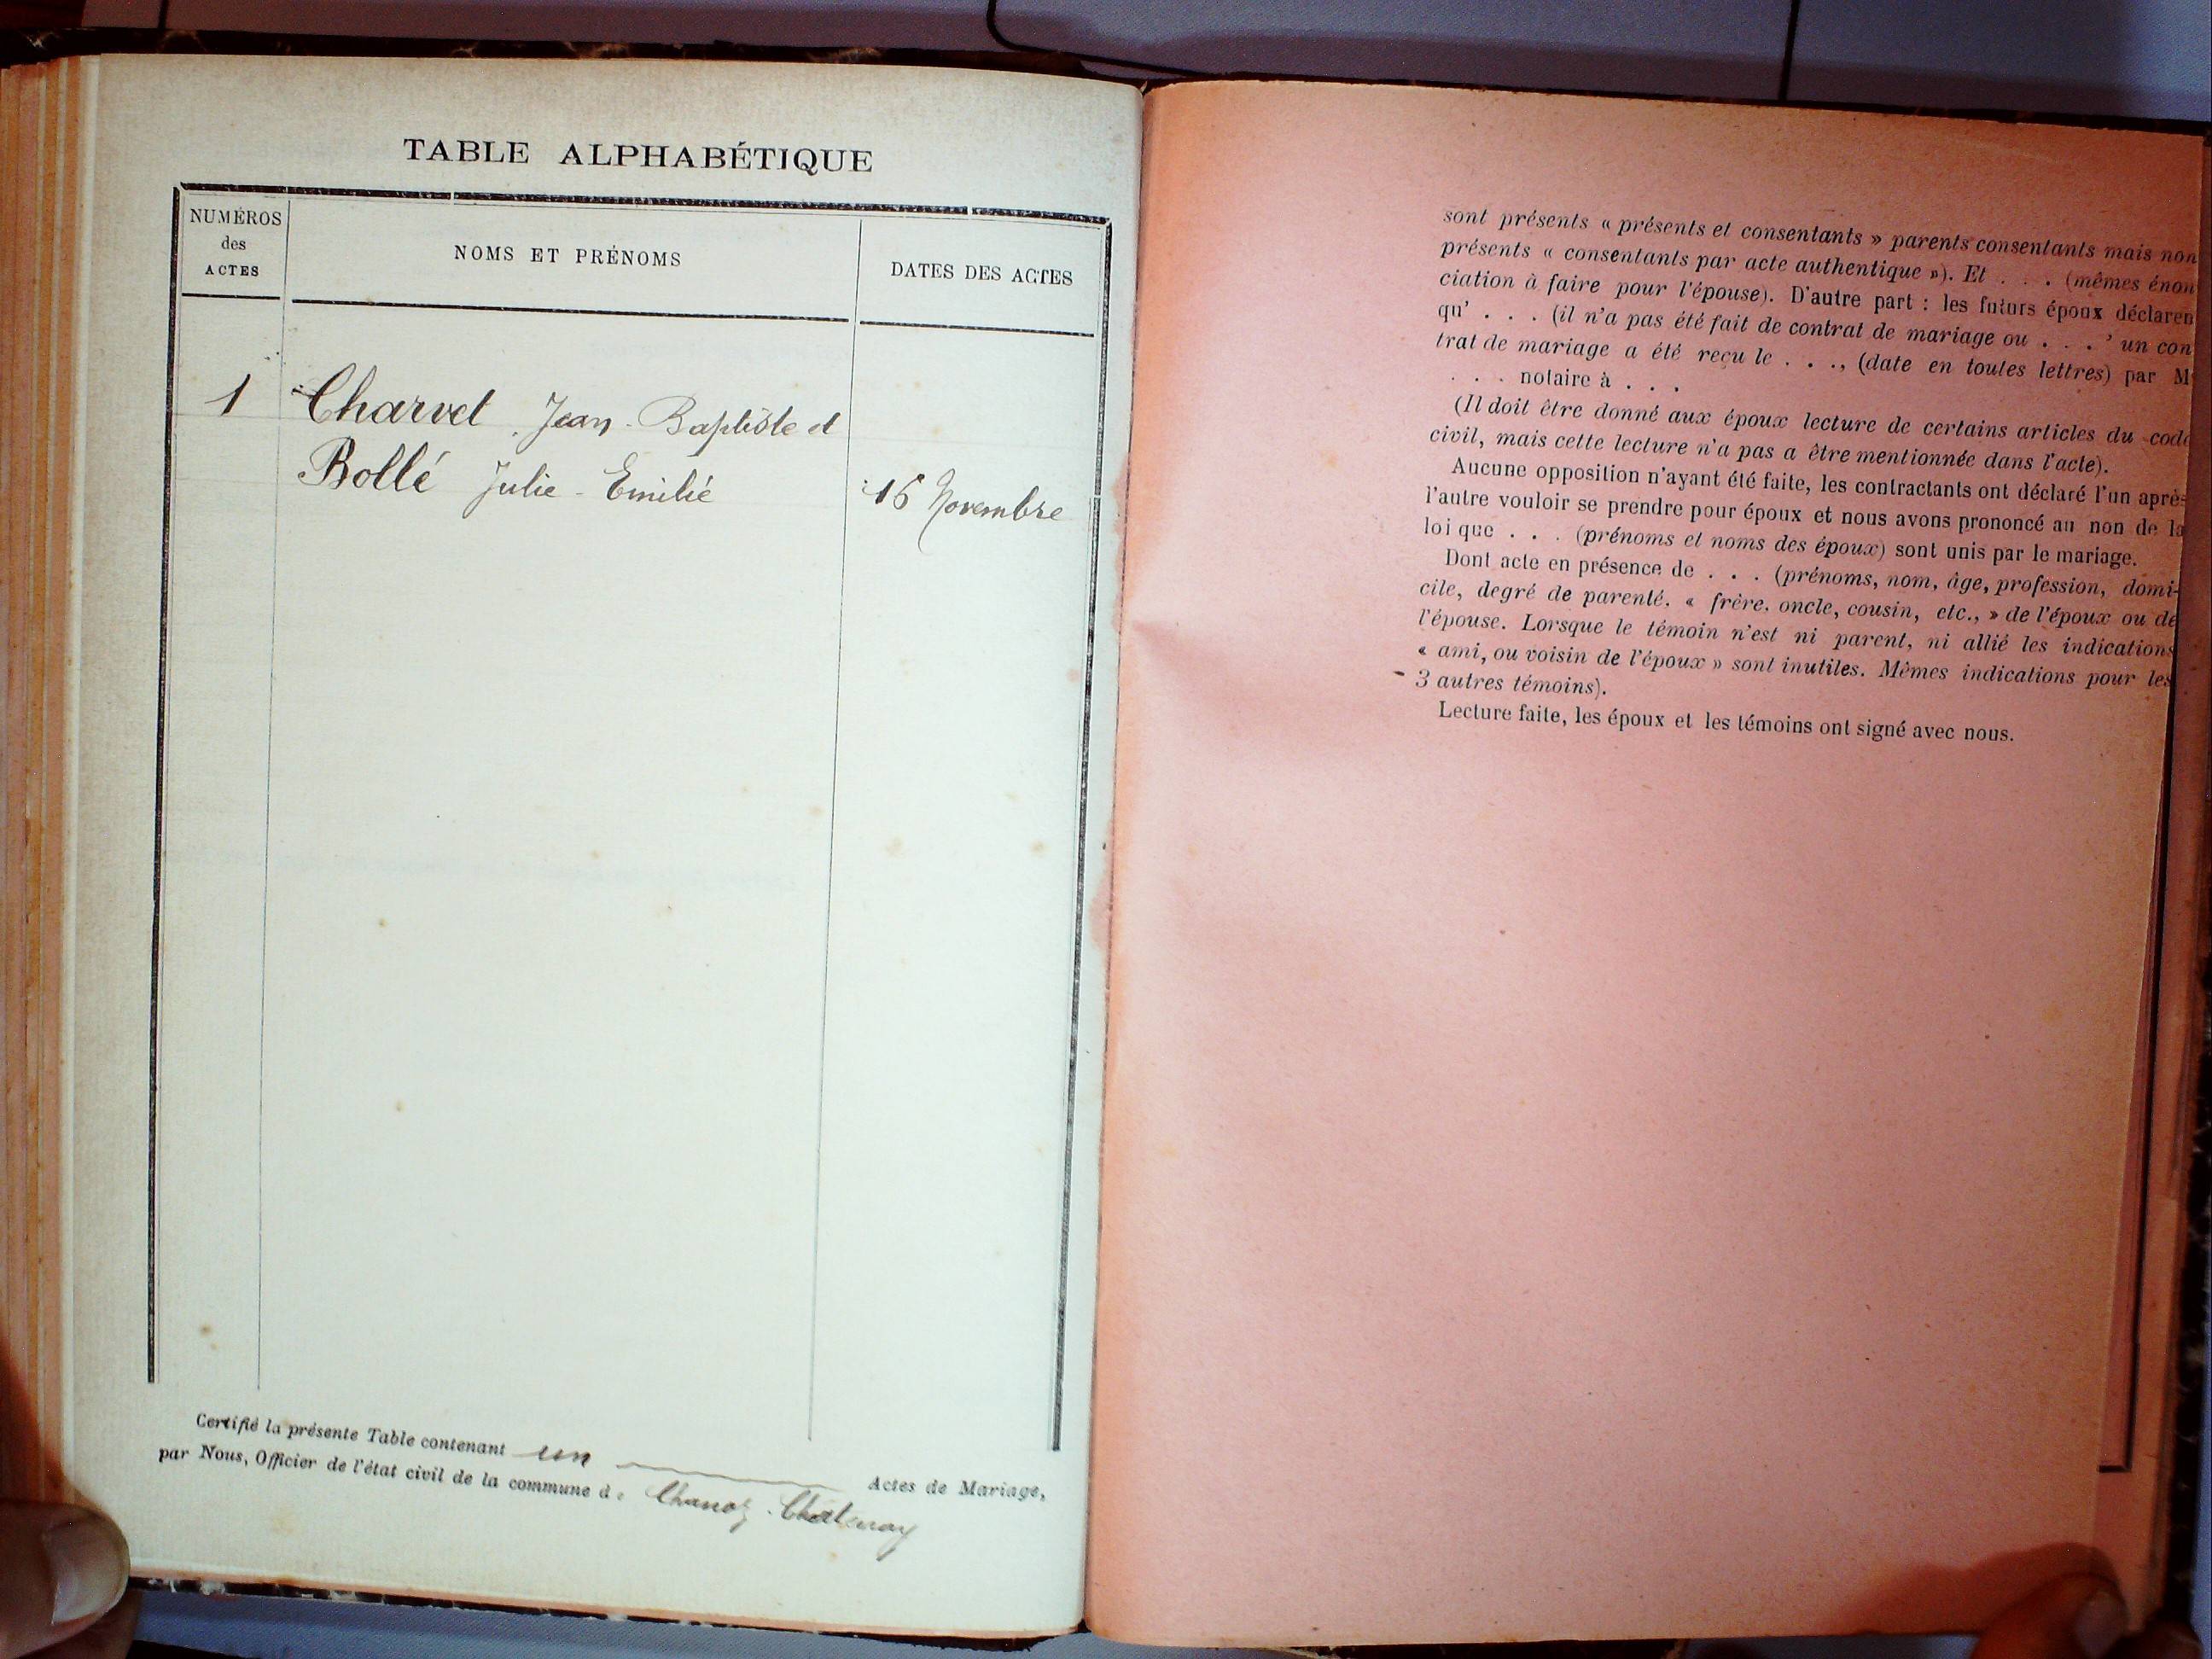 TABLE ALPHABÉTIQUE
NUMÉROS
des
ACTES
NOMS ET PRÉNOMS
DATES DES ACTES
1 Charvet Jean-Baptiste et
Bollé Julie-Emilie 16 Novembre
Certifié la présente Table contenant un Actes de Mariage,
par Nous, Officier de l'état civil de la commune de Chanoz-Chatenay
sont présents « présents et consentants » parents consentants mais non
présents « consentants par acte authentique »). Et . . . (mêmes énon
ciation à faire pour l'épouse). D'autre part : les futurs époux déclaren
qu' . . . (il n'a pas été fait de contrat de mariage ou . . . ' un con
trat de mariage a été reçu le . . ., (date en toutes lettres) par M
. . . notaire à . . .
(Il doit être donné aux époux lecture de certains articles du code
civil, mais cette lecture n'a pas a être mentionnée dans l'acte).
Aucune opposition n'ayant été faite, les contractants ont déclaré l'un après
l'autre vouloir se prendre pour époux et nous avons prononcé au non de la
loi que . . . (prénoms et noms des époux) sont unis par le mariage.
Dont acte en présence de . . . (prénoms, nom, âge, profession, domi-
cile, degré de parenté. « frère. oncle, cousin, etc., » de l'époux ou de
l'épouse. Lorsque le témoin n'est ni parent, ni allié les indications
« ami, ou voisin de l'époux » sont inutiles. Mêmes indications pour les
3 autres témoins).
Lecture faite, les époux et les témoins ont signé avec nous.